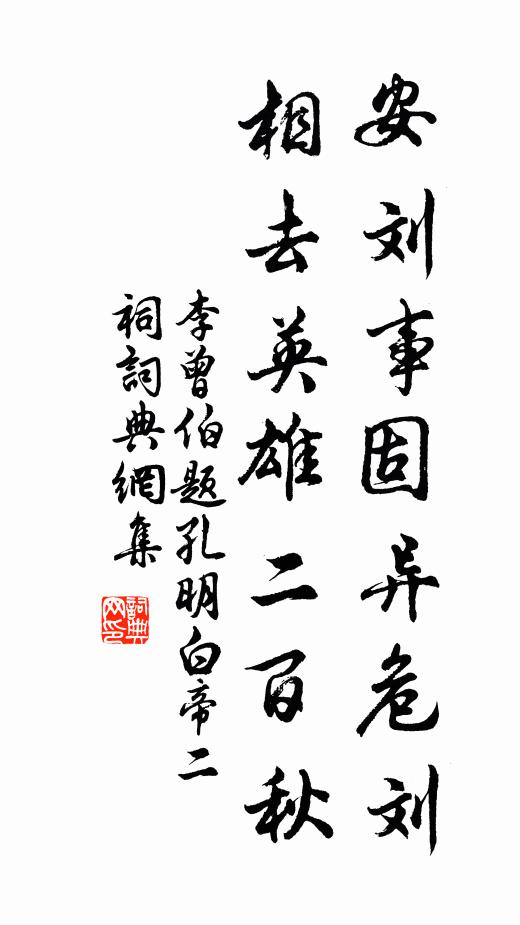 安刘事固异危刘
相去英雄二百秋
李曾伯题孔明白帝二
祠詞典網集
詞典
网印